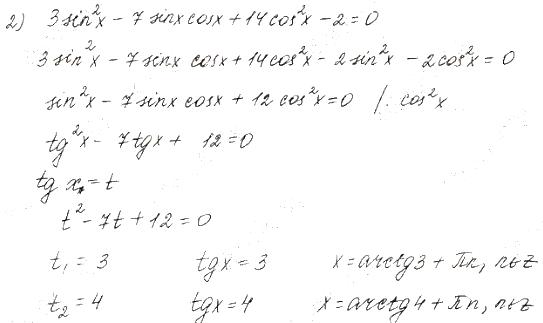 2) 3 sin²x - 7 sinx cosx + 14 cos²x - 2 = 0
3 sin²x - 7 sinx cosx + 14 cos²x - 2 sin²x - 2 cos²x = 0
sin²x - 7 sinx cosx + 12 cos²x = 0 /: cos²x
tg²x - 7 tgx + 12 = 0
tg x = t
t² - 7t + 12 = 0
t₁ = 3 tgx = 3 x = arctg3 + πn, n∈Z
t₂ = 4 tgx = 4 x = arctg4 + πn, n∈Z